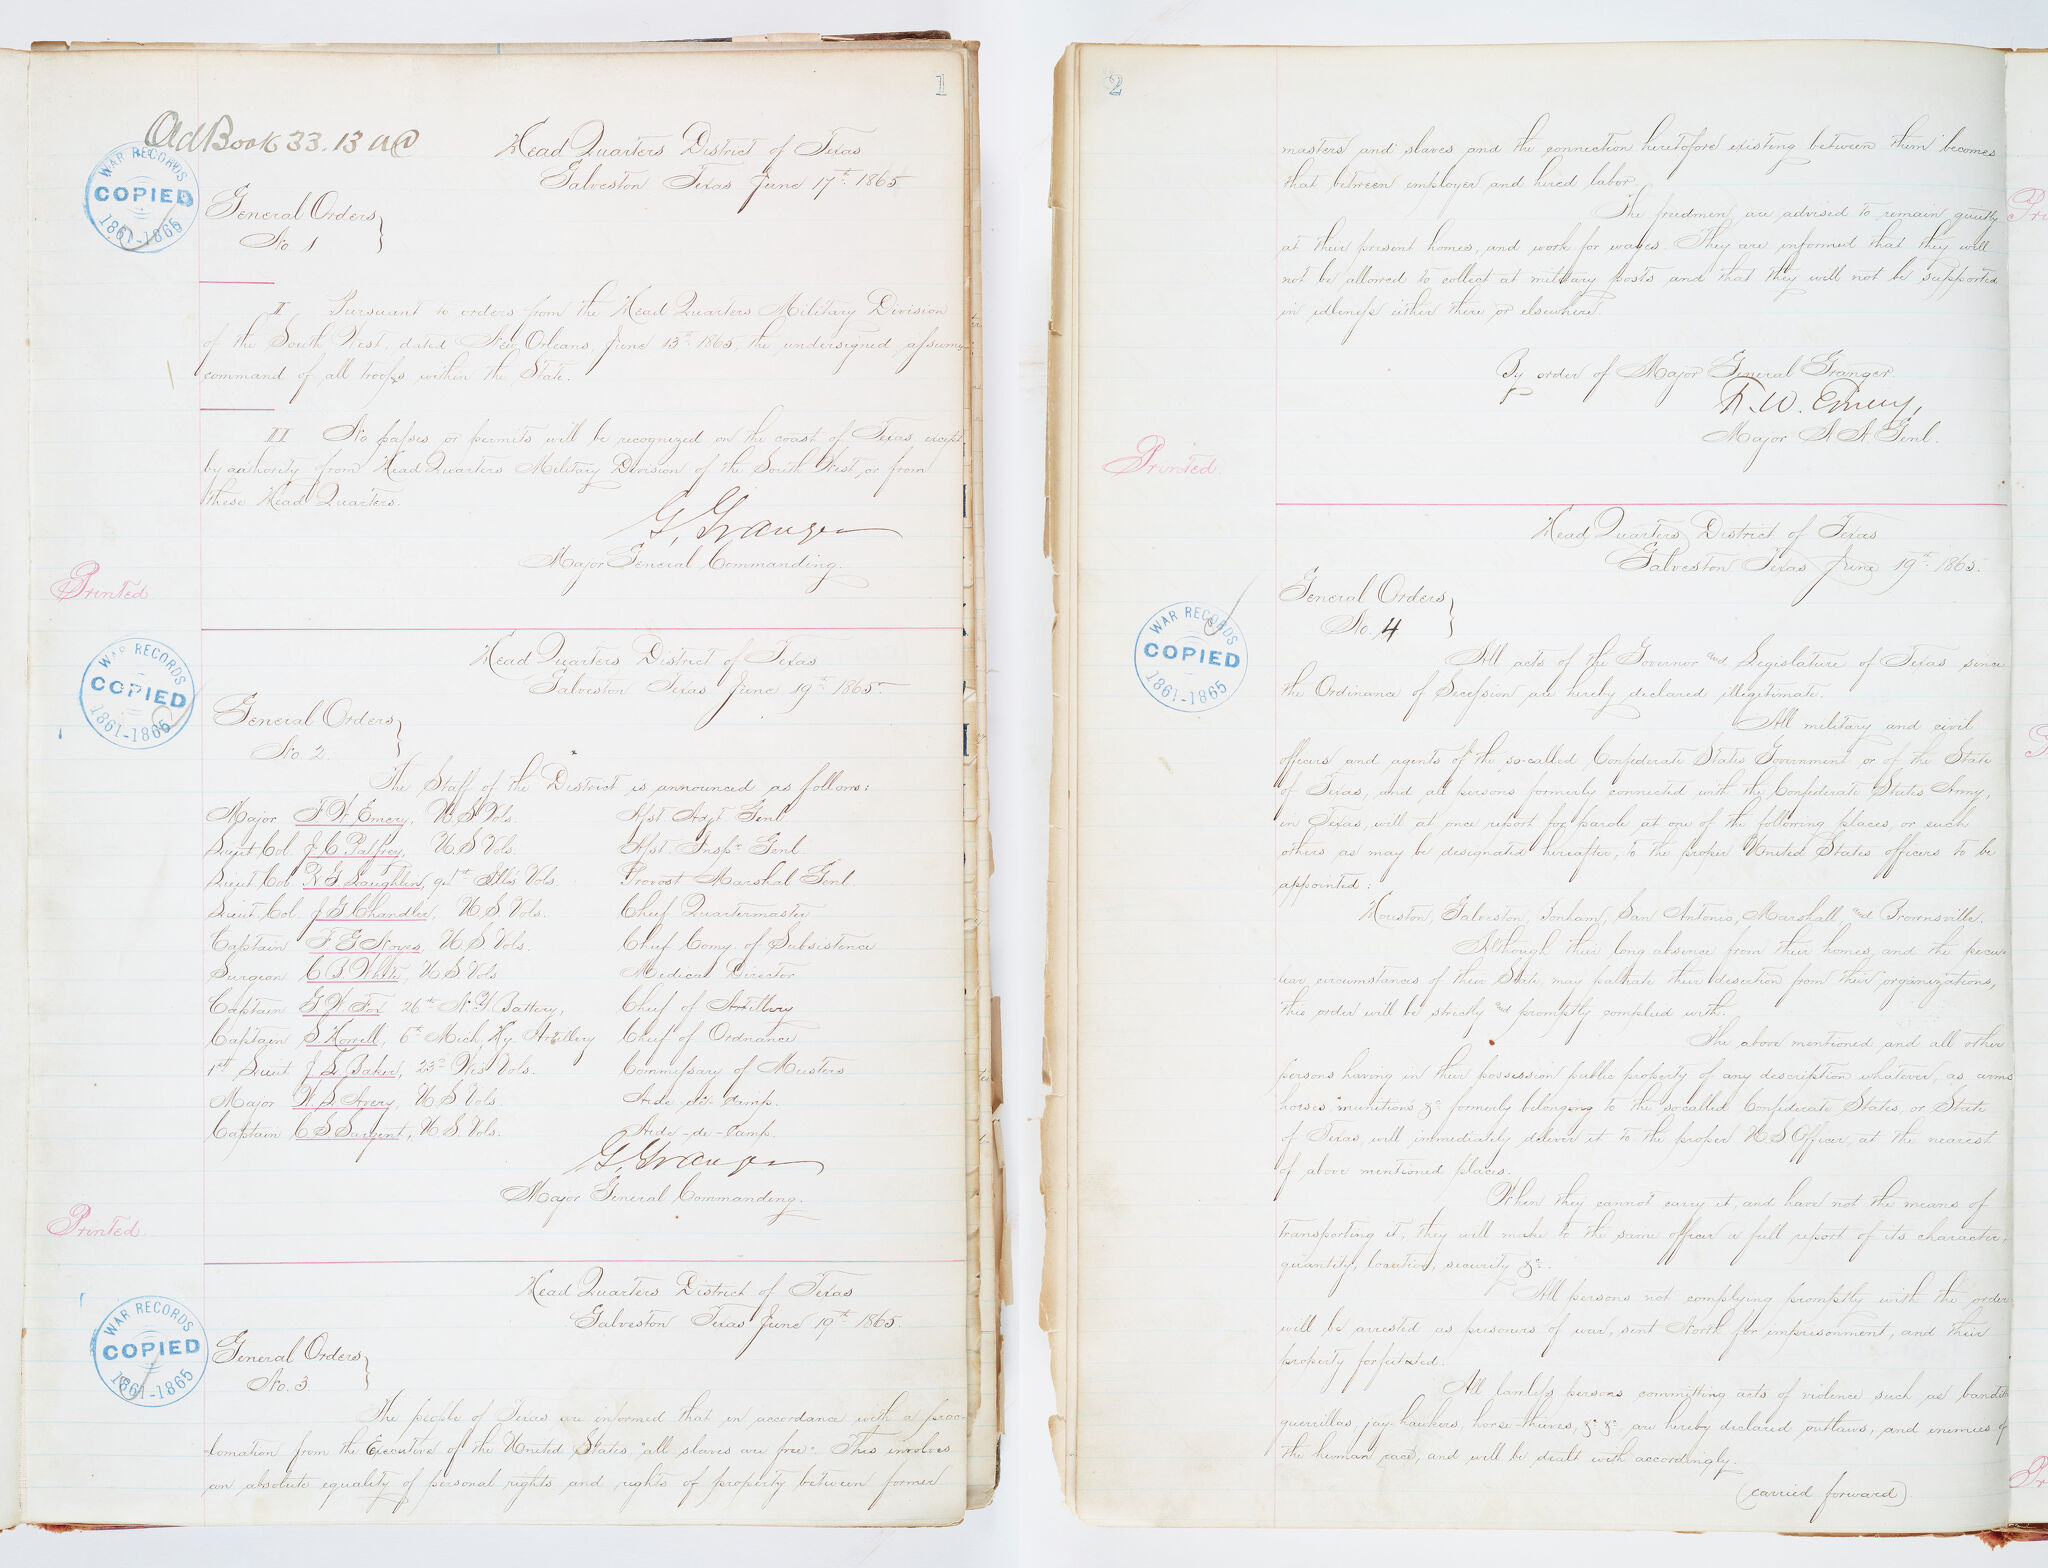 1
Ad Book 33. 13 AC
Head Quarters District of Texas
Galveston Texas June 17th 1865
WAR RECORDS
COPIED
1861-1865
General Orders
No. 1
I Pursuant to orders from the Head Quarters Military Division
of the South West, dated New Orleans, June 13th 1865, the undersigned assumes
command of all troops within the State.
II No passes or permits will be recognized on the coast of Texas, except
by authority from Head Quarters Military Division of the South West, or from
these Head Quarters.
G. Granger
Major General Commanding.
Printed
Head Quarters District of Texas
Galveston Texas June 19th 1865
WAR RECORDS
COPIED
1861-1865
General Orders
No. 2.
The Staff of the District is announced as follows:
Major F. W. Emery, U.S. Vols. Asst Adjt Genl.
Lieut. Col. J. C. Palfrey, U.S. Vols. Asst. Insp. Genl.
Lieut. Col. R. G. Laughlin, 94th Ills Vols. Provost Marshal Genl.
Lieut. Col. J. G. Chandler, U.S. Vols. Chief Quartermaster
Captain F. G. Noyes, U.S. Vols. Chief Comy. of Subsistence
Surgeon C. B. White, U.S. Vols Medical Director
Captain G. W. Fox 26th N.Y. Battery, Chief of Artillery
Captain S. Howell, 6th Mich. Hy. Artillery Chief of Ordnance
1st Lieut J. L. Baker, 23d Wis Vols. Commissary of Musters
Major W. L. Avery, U.S. Vols. Aide-de-Camp.
Captain C. S. Sargent, U.S. Vols. Aide-de-Camp.
G. Granger
Major General Commanding.
Printed.
Head Quarters District of Texas
Galveston Texas June 19th 1865.
WAR RECORDS
COPIED
1861-1865
General Orders
No. 3.
The people of Texas are informed that in accordance with a proc-
lamation from the Executive of the United States, "all slaves are free". This involves
an absolute equality of personal rights and rights of property between former
2
masters and slaves and the connection heretofore existing between them becomes
that between employer and hired labor.
The freedmen are advised to remain quietly
at their present homes, and work for wages. They are informed that they will
not be allowed to collect at military posts and that they will not be supported
in idleness either there or elsewhere.
By order of Major General Granger.
F. W. Emery,
Major A A Genl.
Printed.
Head Quarters District of Texas
Galveston Texas June 19th 1865.
WAR RECORDS
COPIED
1861-1865
General Orders
No. 4
All acts of the Governor and Legislature of Texas since
the Ordinance of Secession are hereby declared illegitimate.
All military and civil
officers and agents of the so-called Confederate States Government or of the State
of Texas, and all persons formerly connected with the Confederate States Army,
in Texas, will at once report for parole at one of the following places, or such
others as may be designated hereafter, to the proper United States officers to be
appointed:
Houston, Galveston, Bonham, San Antonio, Marshall, and Brownsville.
Although their long absence from their homes, and the pecu-
liar circumstances of their State, may palliate their desertion from their organizations,
this order will be strictly and promptly complied with.
The above mentioned and all other
persons having in their possession public property of any description whatever, as arms
horses, munitions &c formerly belonging to the so called Confederate States, or State
of Texas, will immediately deliver it to the proper U.S. Officer, at the nearest
of above mentioned places.
When they cannot carry it, and have not the means of
transporting it, they will make to the same officer a full report of its character,
quantity, location, security &c.
All persons not complying promptly with the order
will be arrested as prisoners of war, sent North for imprisonment, and their
property forfeited.
All lawless persons committing acts of violence such as bandits
guerrillas, jay-hawkers, horse-thieves, &c &c are hereby declared outlaws, and enemies of
the human race, and will be dealt with accordingly.
(carried forward)